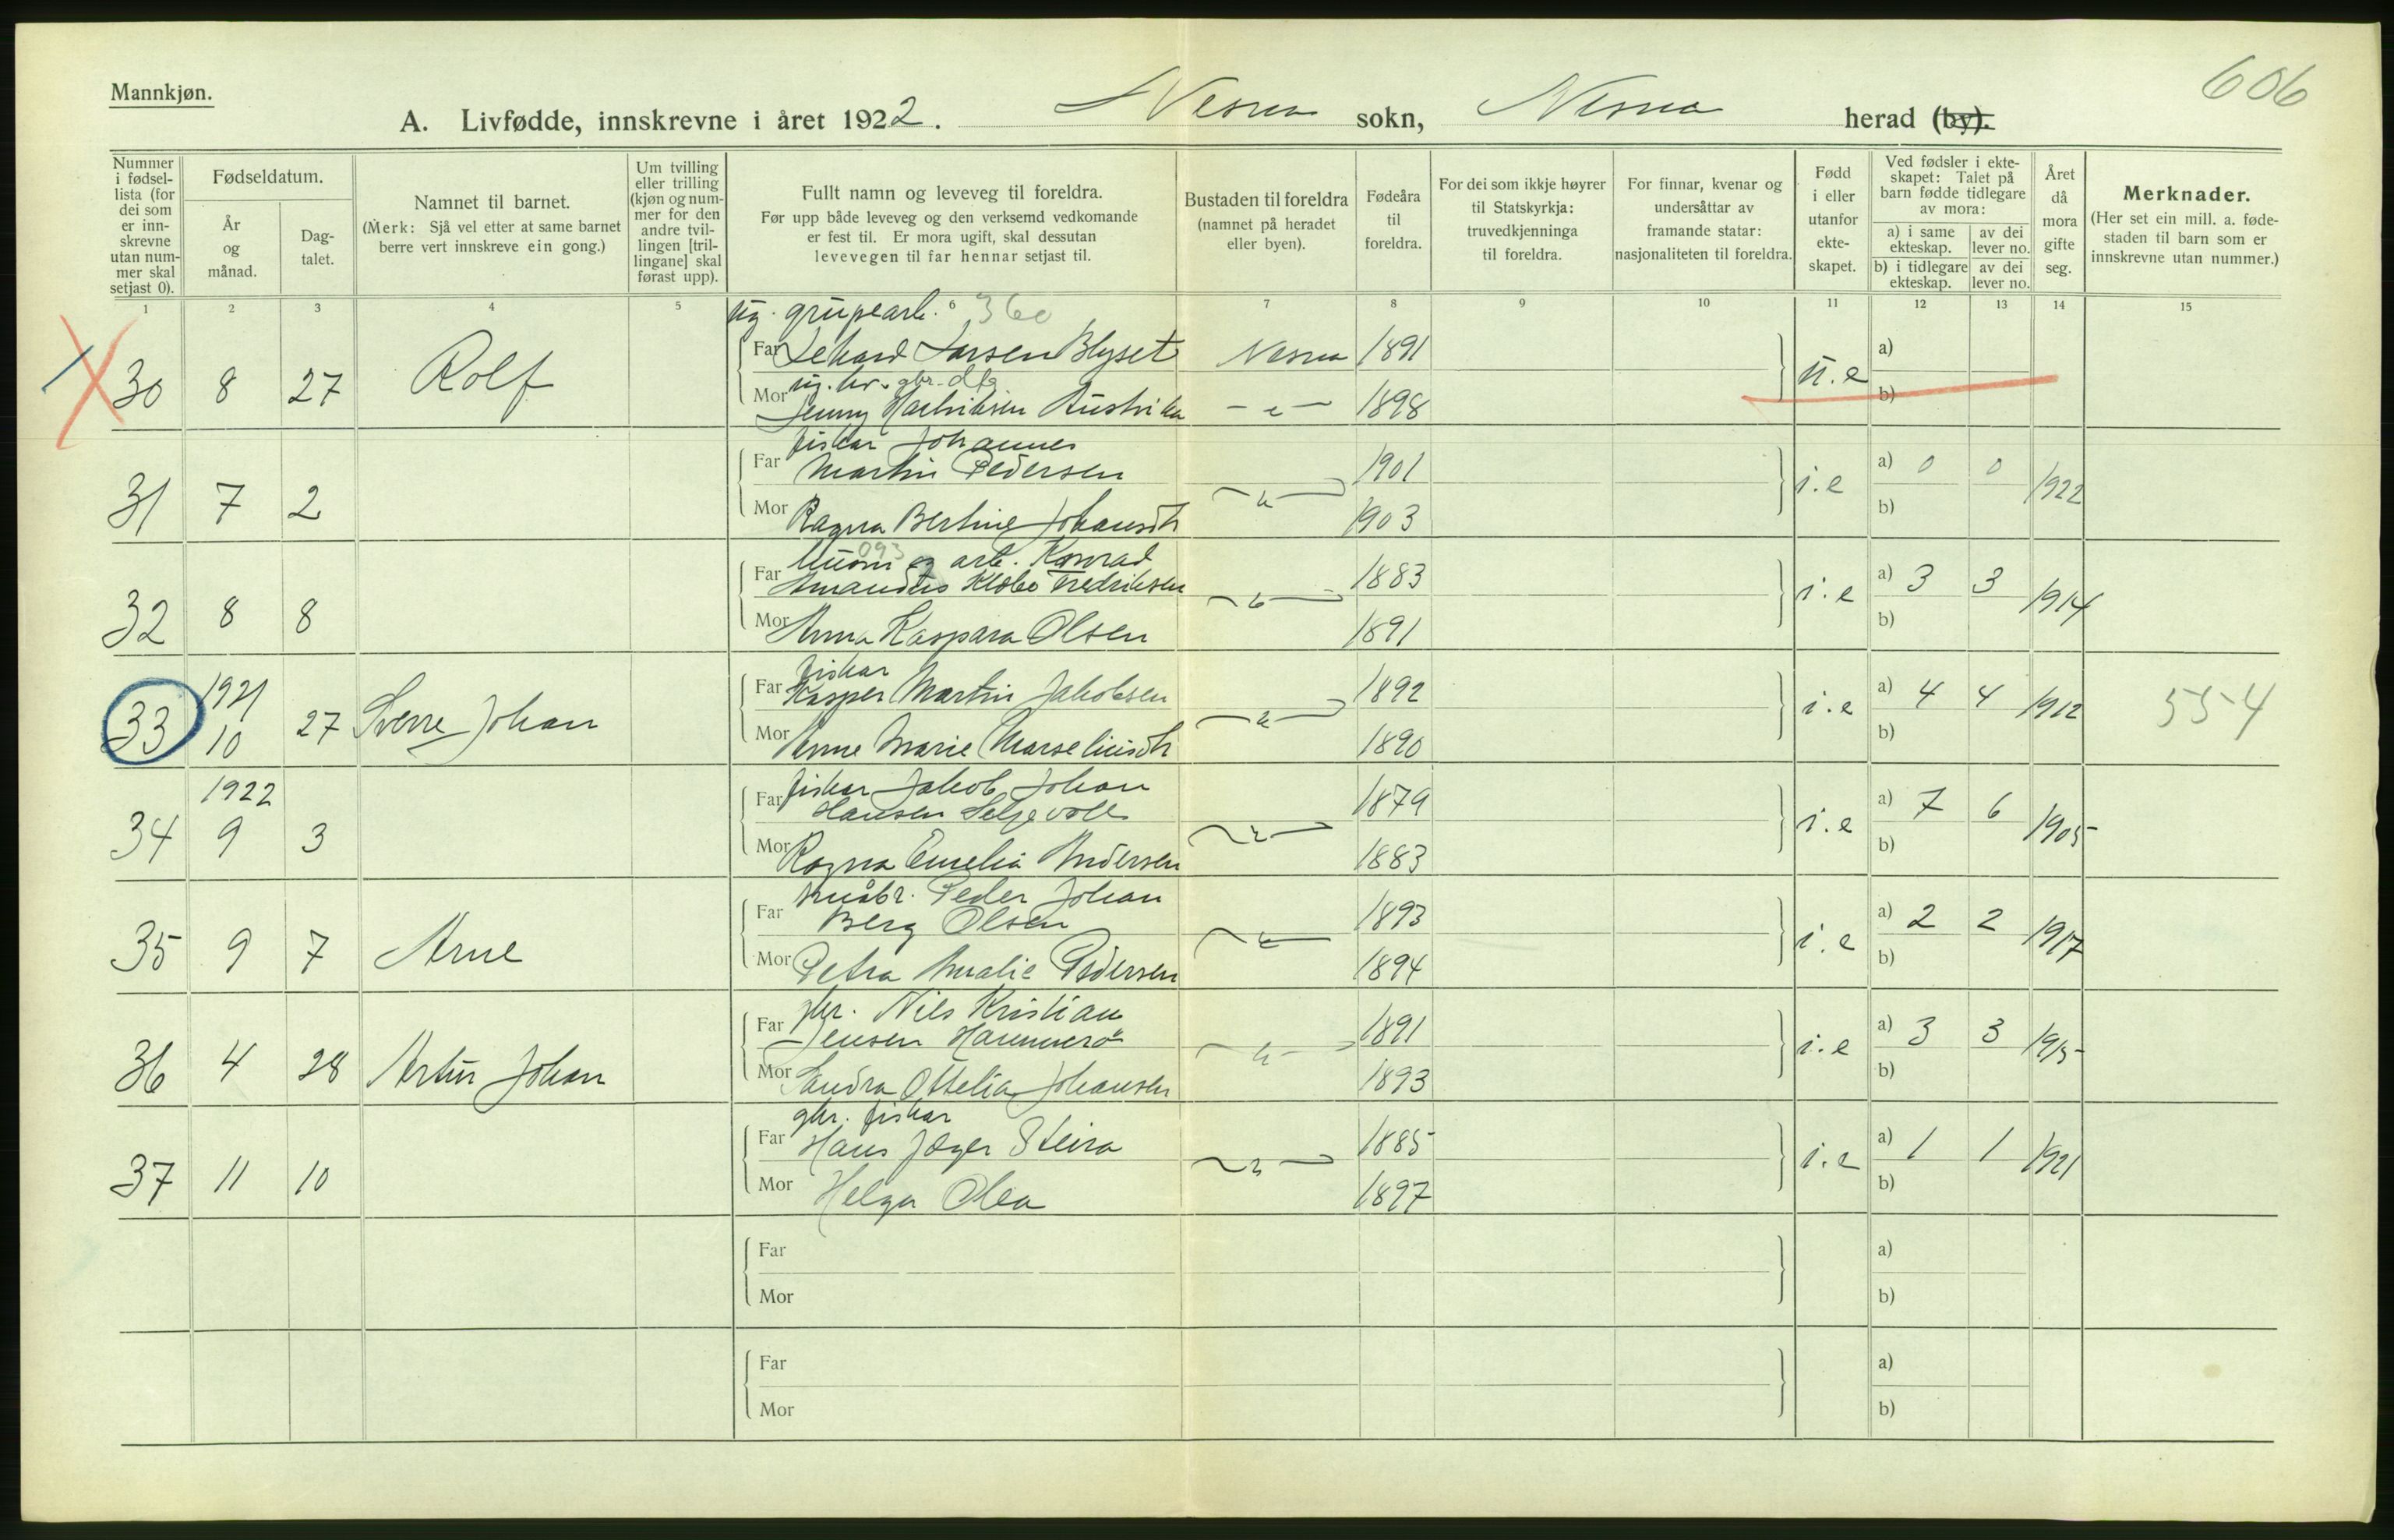 606
Mannkjøn.
A. Livfødde, innskrevne i året 1922. Nesna sokn, Nesna herad (by).
Nummer i fødsel-lista (for dei som er inn-skrevne utan num-mer skal setjast 0).
Fødseldatum.
År og månad.
Dag-talet.
Namnet til barnet.
(Merk: Sjå vel etter at same barnet berre vert innskreve ein gong.)
Um tvilling eller trilling (kjøn og num-mer for den andre tvil-lingen [tril-lingane] skal førast upp).
Fullt namn og leveveg til foreldra.
Før upp både leveveg og den verksemd vedkomande er fest til. Er mora ugift, skal dessutan levevegen til far hennar setjast til.
Bustaden til foreldra
(namnet på heradet eller byen).
Fødeåra til foreldra.
For dei som ikkje høyrer til Statskyrkja: truvedkjenninga til foreldra.
For finnar, kvenar og undersåttar av framande statar: nasjonaliteten til foreldra.
Fødd i eller utanfor ekte-skapet.
Ved fødsler i ekte-skapet: Talet på barn fødde tidlegare av mora:
a) i same ekteskap.
av dei lever no.
b) i tidlegare ekteskap.
av dei lever no.
Året då mora gifte seg.
Merknader.
(Her set ein mill. a. føde-staden til barn som er innskrevne utan nummer.)
1 2 3 4 5 6 7 8 9 10 11 12 13 14 15
ug. grupearb. 360
30 8 27 Rolf
Far Larsen Blyset Nesna 1891 u.e a)
ug.
Mor Jenny 1898 b)
fiskar Johannes
31 7 2
Far Martin Pedersen 1901 i.e a) 0 0 1922
Mor Ragna Bertine Johansdtr 1903 b)
093
og arb. Konrad
32 8 8
Far Fredriksen 1883 i.e a) 3 3 1914
Mor Anna Kaspara Olsen 1891 b)
fiskar
33 1921 10 27 Sverre Johan
Far Kasper Martin Jakobsen 1892 i.e a) 4 4 1912 554
Mor Anne Marie 1890 b)
fiskar Jakob Johan
34 1922 9 3
Far Hansen Seljevoll 1879 i.e a) 7 6 1905
Mor Ragna Emelia Andersen 1883 b)
småbr. Peder Johan
35 9 7 Arne
Far Berg Olsen 1893 i.e a) 2 2 1917
Mor Petra Amalie Pedersen 1894 b)
gbr. Nils Kristian
36 4 28 Artur Johan
Far Jensen Hammerö 1891 i.e a) 3 3 1915
Mor Sandra Ottelia Johansen 1893 b)
gbr. fiskar
37 11 10
Far Hans Jæger Steira 1885 i.e a) 1 1 1921
Mor Helga Olea 1897 b)
Far a)
Mor b)
Far a)
Mor b)